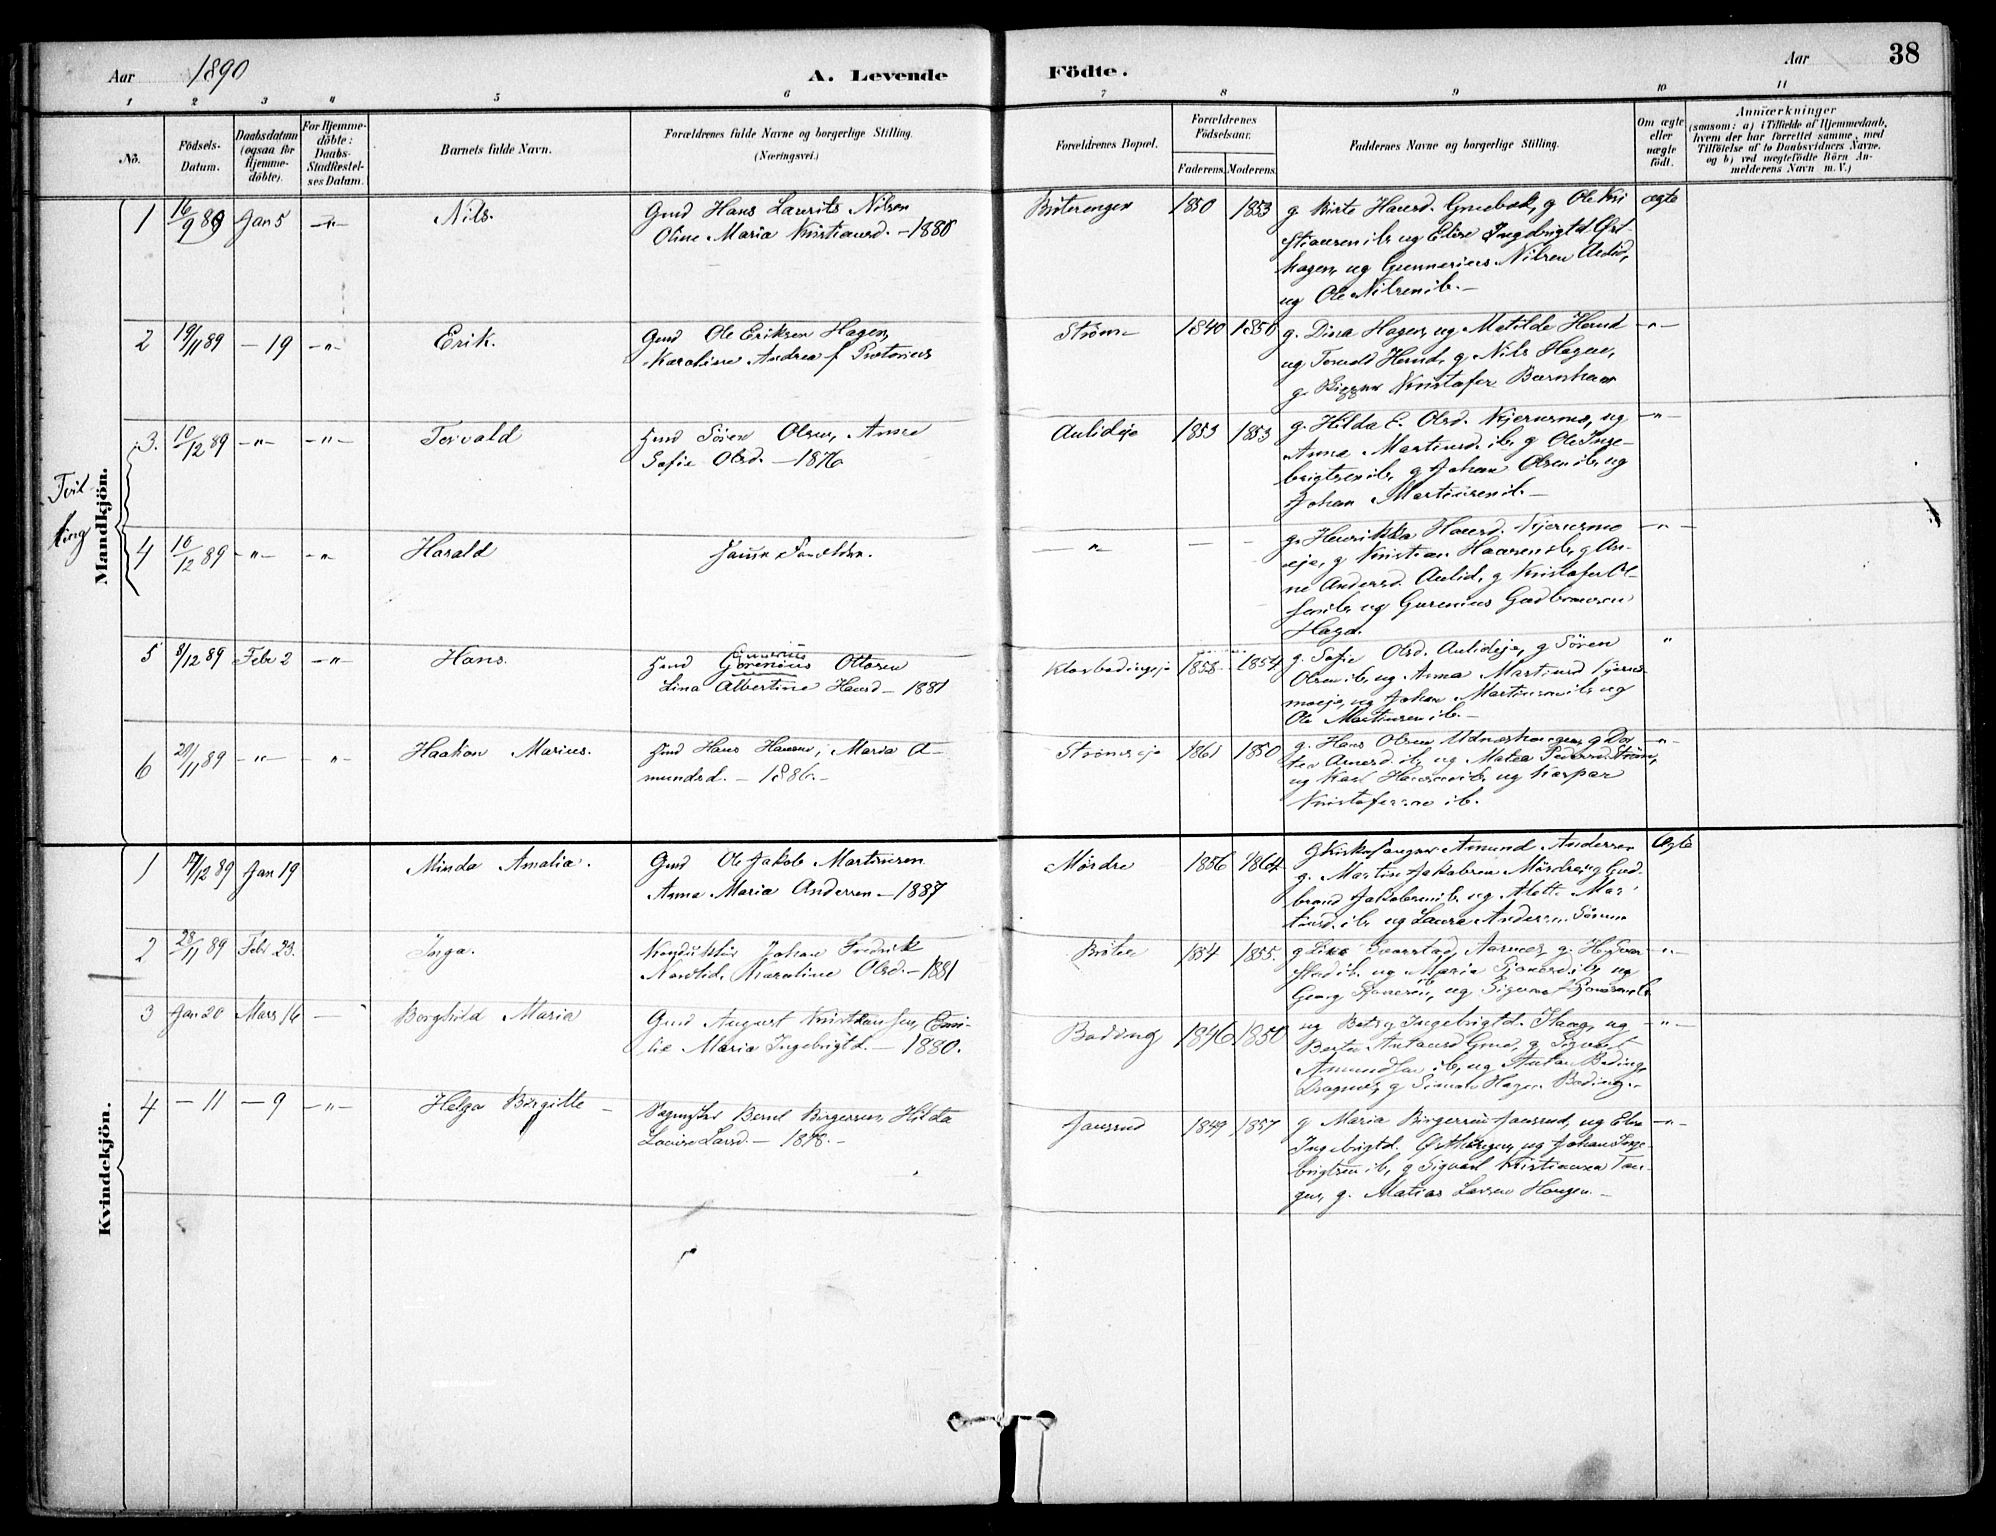 Aar 1890
A. Levende
Födte.
Aar
38
1 2 3 4 5 6 7 8 9 10 11
No.
Födsels-
Datum.
Daabsdatum
(ogsaa for
Hjemme-
döbte).
For Hjemme-
döbte:
Daabs-
Stadfæstel-
ses Datum.
Barnets fulde Navn.
Forældrenes fulde Navne og borgerlige Stilling.
(Næringsvei.)
Forældrenes Bopæl.
Forældrenes
Födselsaar.
Faderens. Moderens.
Faddernes Navne og borgerlige Stilling.
Om ægte
eller
uægte
födt.
Anmærkninger
(saasom: a) i Tilfælde af Hjemmedaab,
hvem der har forrettet samme, med
Tilföielse af to Daabsvidners Navne,
og b) ved uægtefödte Börn An-
melderens Navn m. V.)
Mandkjön.
1 16/9 89 Jan 5 -"- Nils.
Gmd Hans Laurits Nilsen
Oline Maria Kristiansd. - 1880
Bröterengen 1850 1853
g. Birte Hansd. Gruebæk, g Ole Kri
stiansen ib. ug Elise Ingebrigtsd. Øst-
hagen, ug Gunnerius Nilsen Aulid,
ug Ole Nilsen ib. -
ægte
2 19/11 89 - 19 -"- Erik.
Gmd Ole Eriksen Hagen,
Karoline Andrea f.
Strøm 1840 1850
g. Dina Hagen, ug Matilde
ug g. Nils Hagen,
g. Kristofer
-"-
Tvil-
ling
3. 10/12 89 -"- -"- Torvald
Hmd Sören Olsen, Anne
Sofie Olsd. - 1876
Aulideje 1853 1853
g. Hilda E. Olsd. Kjernsmo, ug
Anna Martinsd. ib, g Ole Inge-
brigtsen ib, g Johan Olsen ib, ug
Johan Martinsen ib. -
-"-
4 10/12 89 -"- -"- Harald
Samme Forældre.
-"- - -
g. Henrikka Hansd. Kjernsmo
eje, g Kristian Hansen ib, g An-
ne Andersd. Aulid, g Kristofer Ol-
sen ib, ug Gurenius Gudbransen
Haga.
-"-
5 8/12 89 Febr 2 -"- Hans.
Hmd Görenius Ottosen
Lina Albertine Hansd - 1881
1858 1854
g. Sofie Olsd. Aulideje, g Sören
Olsen ib, ug Anna Martinsd Kjerns-
moeje, ug Johan Martinsen ib, ug
Ole Martinsen ib. -
"
6 20/11 89 -"- -"- Haakon Marius.
Hmd Hans Hansen, Maria A-
mundsd. - 1886. -
Strömseje 1861 1850
g. Hans Olsen Udneshaugen, g Dor-
tea Arnesd. ib, ug Matea Pedersd. Ström,
ug Karl Hansen ib, ug Kaspar
Kristofersen ib.
-"-
Kvindekjön.
1 17/12 89 Jan 19 Minda Amalia.
Gmd Ole Jakob Martinsen
Anna Maria Andersen - 1887
Mördre 1856 1864
g Kirkesanger Amund Andersen
g. Martin Jakobsen Mördre, ug Gud-
brand Jakobsen ib. ug Mar-
tinsd. ib. ug Laura Andersen Sörum
Ægte
2 28/11 89 Febr 23. Inga.
Konduktör Johan Fredrik
Nordlid, Karoline Olsd. - 1881
Bröten 1854 1855.
g Svarstad, Aarnes, g. H. Svar-
stad ib. ug Maria ib, ug
Georg ib, ug Sigurd
-"-
3 Jan 20 Mars 16 - Borghild Maria
Gmd August Kristiansen, Emi-
lie Maria Ingebrigtd. - 1880.
Boding 1846 1850
ug Betsy Ingebrigtd. Haag, ug
Berte Antonsd Grue, g. Sigvart
Amundsen ib, ug Anton Boding,
Dragner, g Simon Hagen Boding. -
-"-
4 - 11 - 9 -"- Helga Birgitte -
Bernt Birgersen, Hilda
Lovise Larsd. - 1878. -
Jansrud 1849 1857
g Maria Birgersen Jansrud, ug Elise
Ingebrigtd. Östhagen, ug Johan Inge-
brigtsen ib, g Sigvart Kristiansen Tan-
gen, g. Matias Larsen Haugen. -
-"-